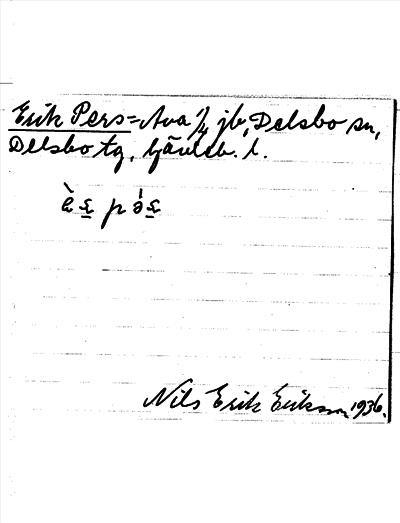 Erik Pers = Ava 1/4 jb, Delsbo sn,
Delsbo tg, Gävleb. l.
Nils Erik Eriksson 1936.